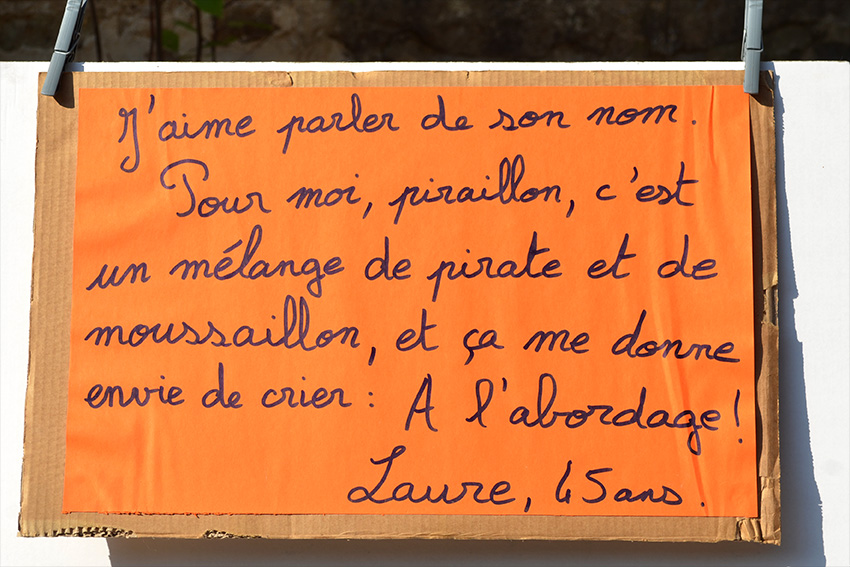 J'aime parler de son nom.
Pour moi, piraillon, c'est
un mélange de pirate et de
moussaillon, et ça me donne
envie de crier : A l'abordage !
Laure, 45 ans.